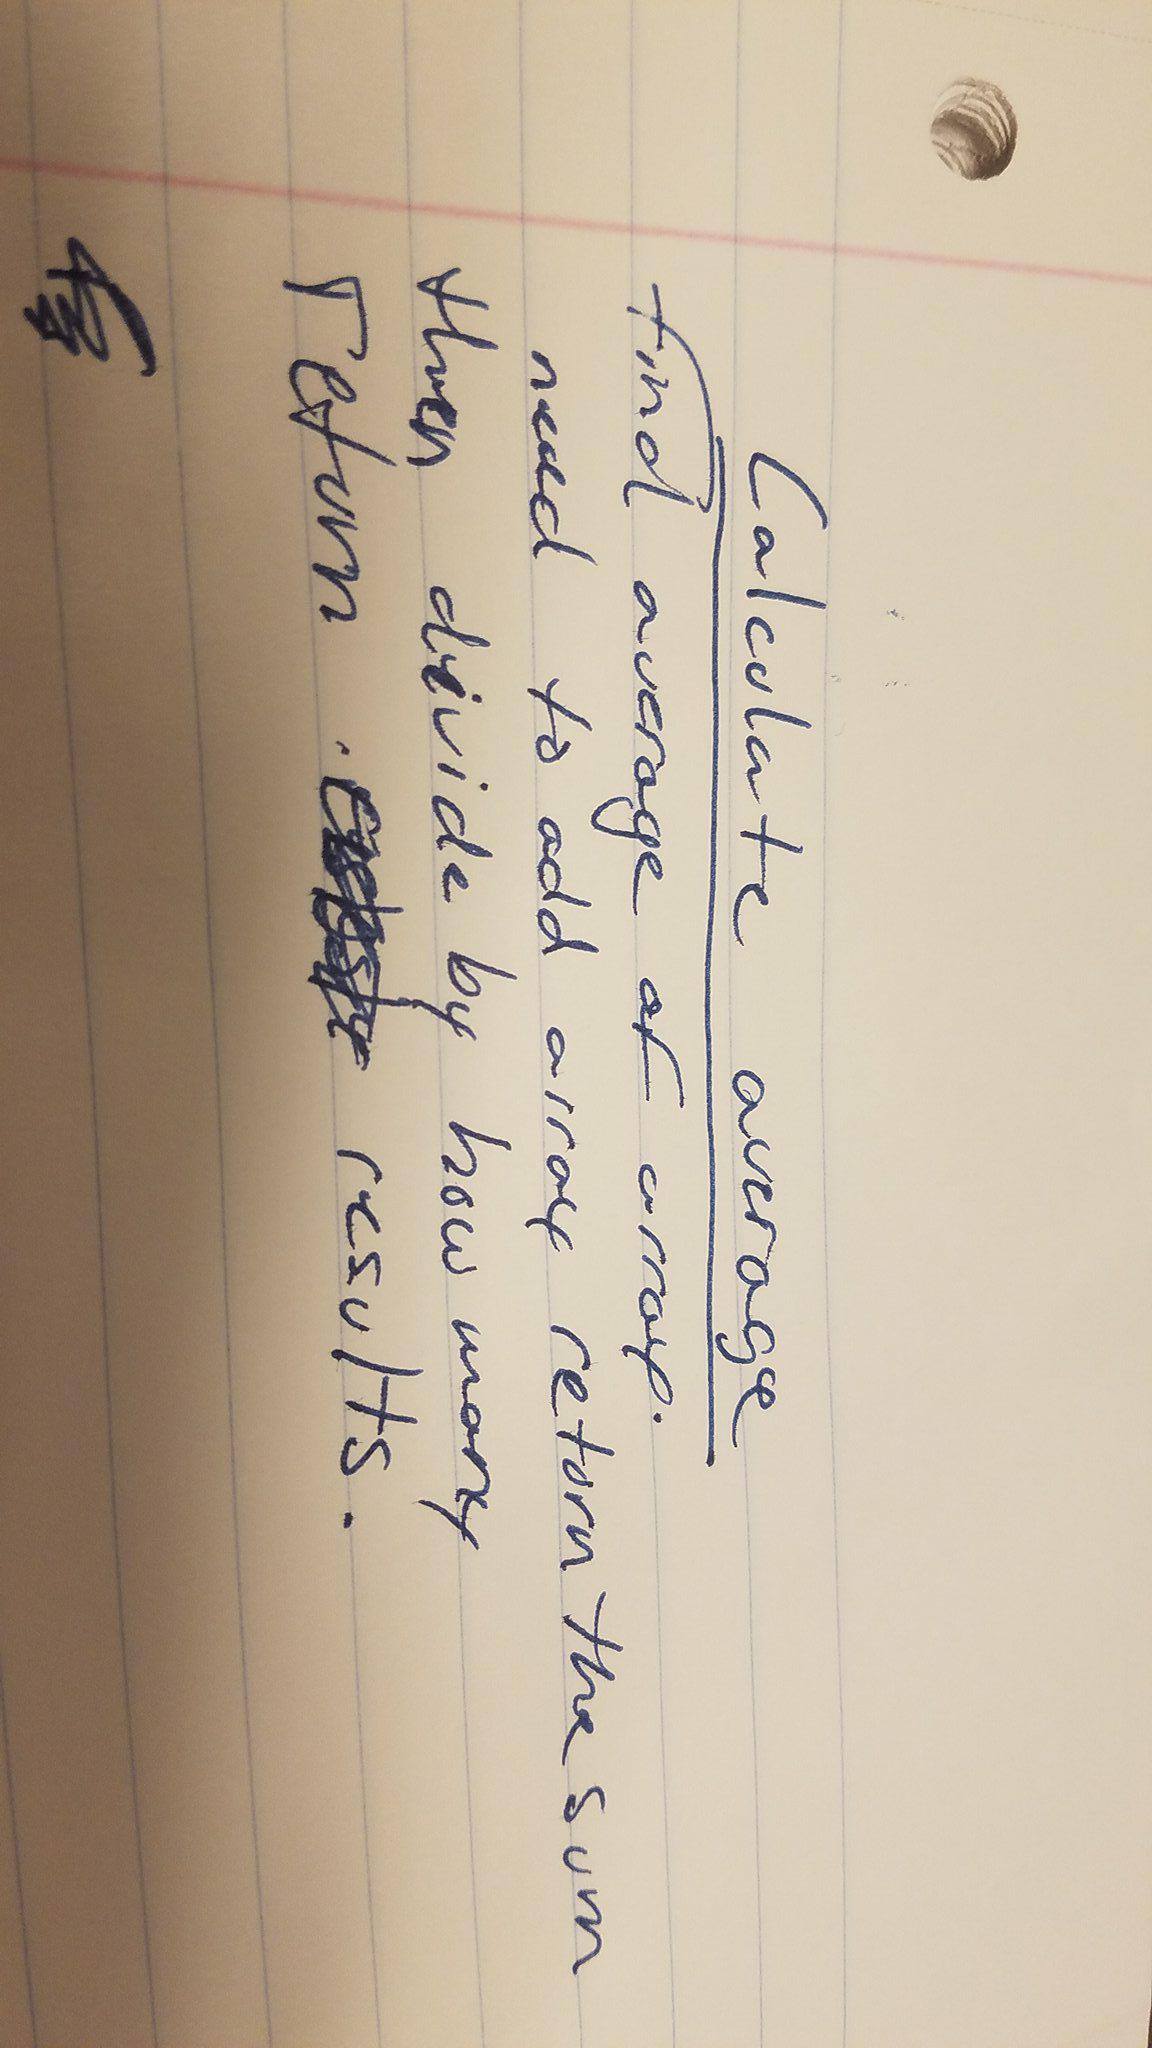 Calculate average
find average of array.
need to add array return the sum
then divide by how many
return . results.